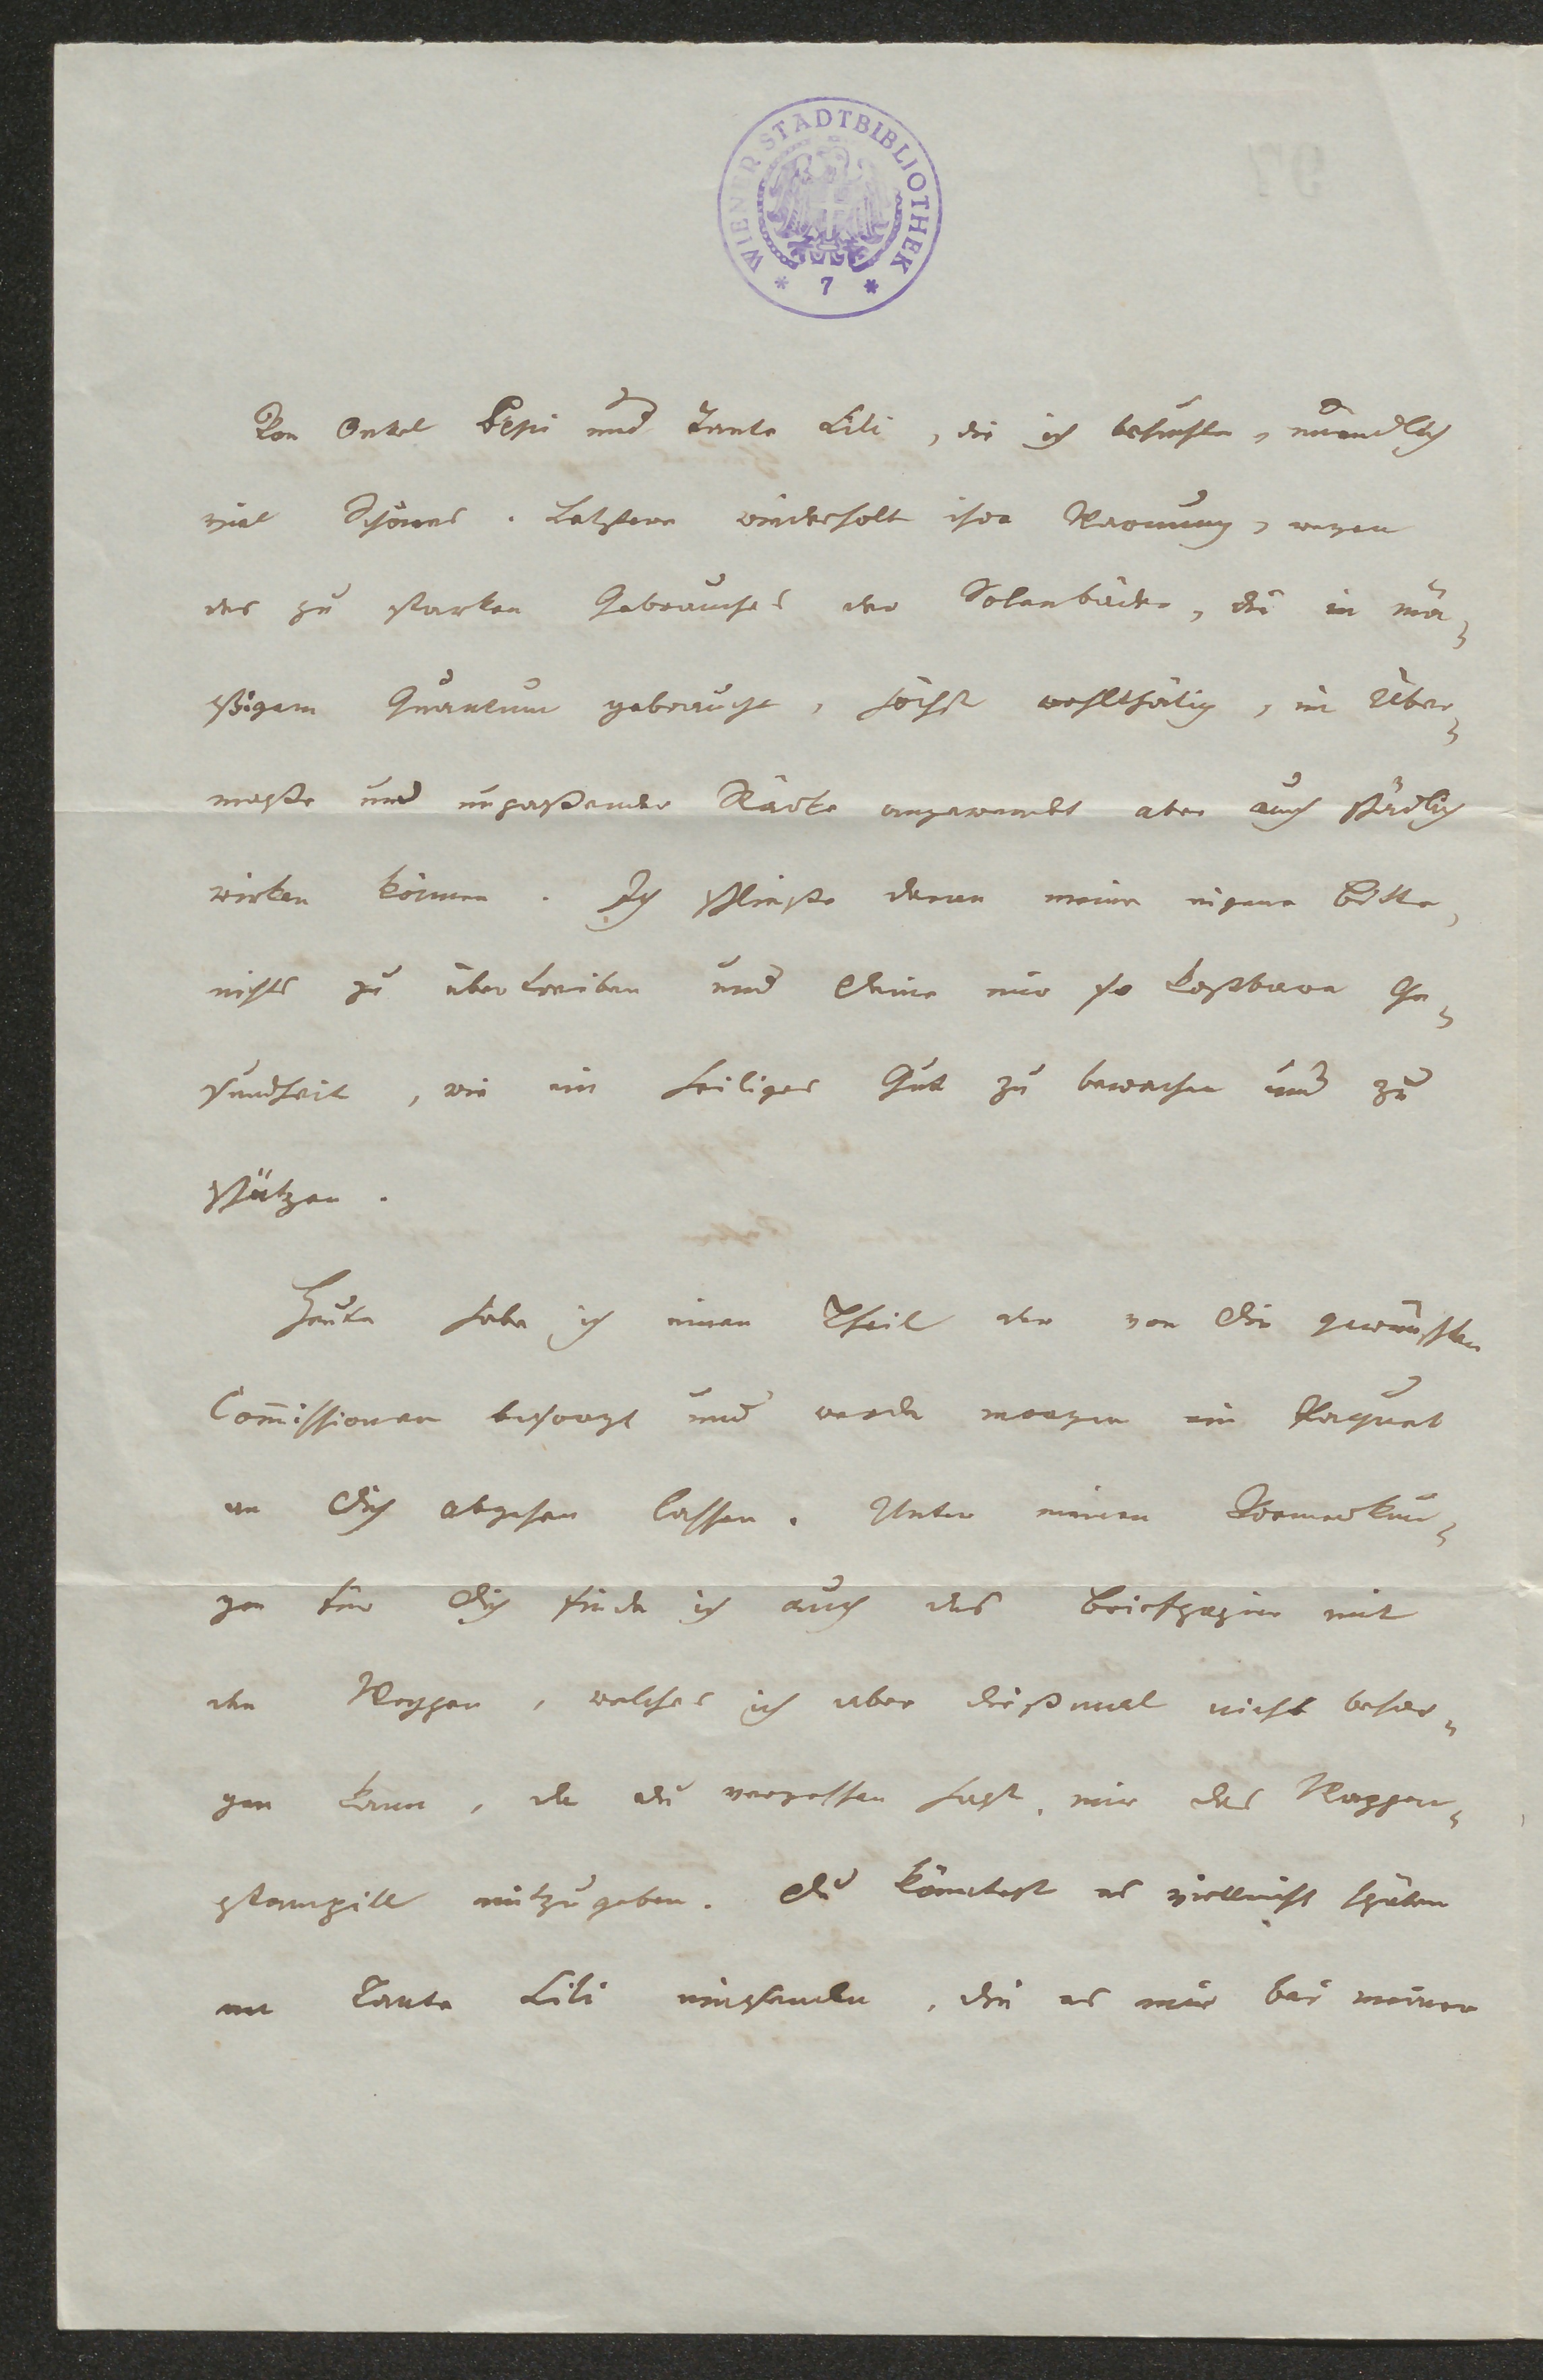 WIENER STADTBIBLIOTHEK
* 7 *
Von Onkel Pepi und Tante Lili, die ich besuchte, unendlich
viel Schönes. Letztere wiederholt ihre Warnung, wegen
des zu starken Gebrauches der Solenbäder, die in mä„
ßigem Quantum gebraucht, höchst wohlthätig, im Über„
maße und unpaßender Stärke angewendet aber auch schädlich
wirken können. Ich schließe daran meine eigene Bitte,
nichts zu übertreiben und Deine mir so kostbare Ge„
sundheit, wie ein heiliges Gut zu bewachen und zu
schützen.
Heute habe ich einen Theil der von Dir gewünschten
Com̄issionen besorgt und werde morgen ein Paquet
an Dich abgehen lassen. Unter meinen Vormerkun„
gen für Dich finde ich auch das Briefpapier mit
den Wappen, welches ich aber dießmal nicht besor„
gen kann, da du vergessen hast, mir das Wappen„
stampill mitzugeben. Du könntest es vielleicht später
an Tante Lili einsenden, die es mir bei meiner